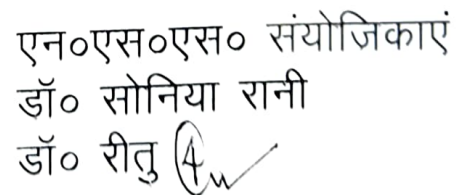 एन०एस०एस० संयोजिकाएं
डॉ० सोनिया रानी
डॉ० रीतु